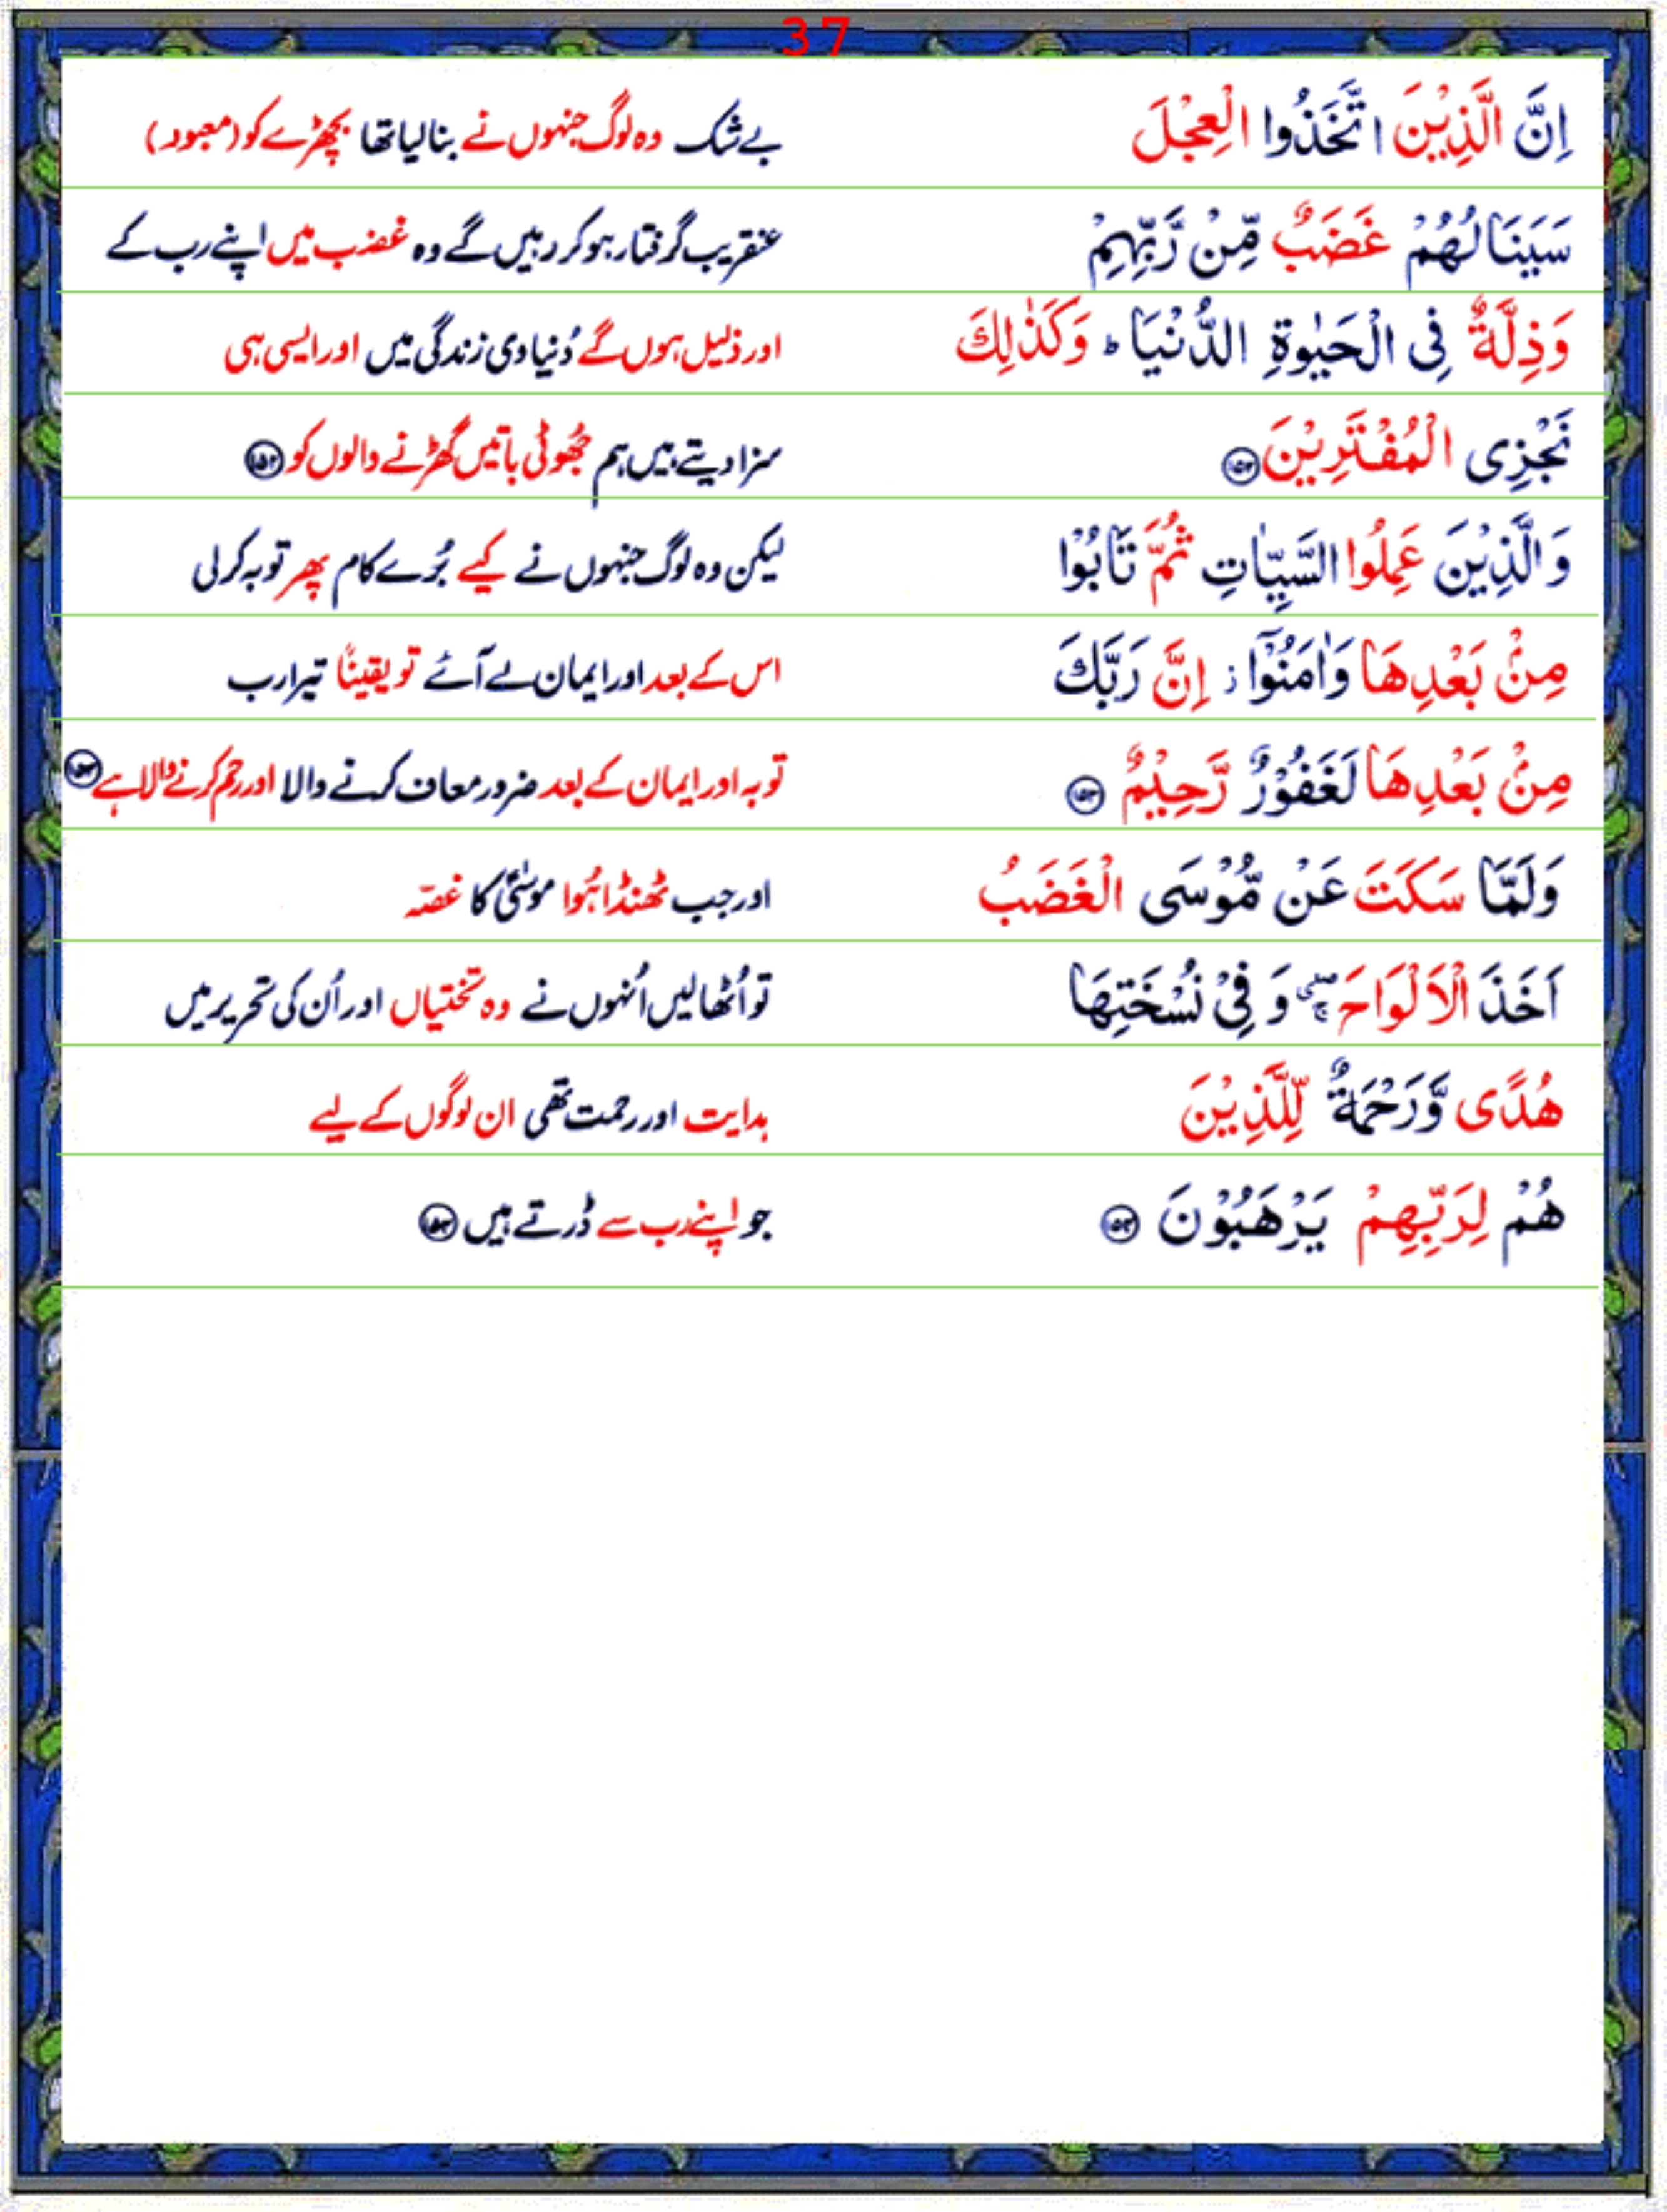 37
اِنَّ الَّذِيْنَ اتَّخَذُوا الْعِجْلَ بے شک وہ لوگ جنہوں نے بنالیا تھا بچھڑے کو (معبود)
سَيَنَالُهُمْ غَضَبٌ مِّنْ رَّبِّهِمْ عنقریب گرفتار ہو کر رہیں گے وہ غضب میں اپنے رب کے
وَذِلَّةٌ فِى الْحَيٰوةِ الدُّنْيَا ؕ وَكَذٰلِكَ اور ذلیل ہوں گے دُنیاوی زندگی میں اور ایسی ہی
نَجْزِى الْمُفْتَرِيْنَ ۝۱۵۲ سزا دیتے ہیں ہم جھوٹی باتیں گھڑنے والوں کو ۝۱۵۲
وَالَّذِيْنَ عَمِلُوا السَّيِّاٰتِ ثُمَّ تَابُوْا لیکن وہ لوگ جنہوں نے کیے بُرے کام پھر توبہ کرلی
مِنْۢ بَعْدِهَا وَاٰمَنُوْۤا ؗ اِنَّ رَبَّكَ اس کے بعد اور ایمان لے آئے تو یقیناً تیرا رب
مِنْۢ بَعْدِهَا لَغَفُوْرٌ رَّحِيْمٌ ۝۱۵۳ توبہ اور ایمان کے بعد ضرور معاف کرنے والا اور رحم کرنے والا ہے ۝۱۵۳
وَلَمَّا سَكَتَ عَنْ مُّوْسَى الْغَضَبُ اور جب ٹھنڈا ہُوا موسٰیؑ کا غصّہ
اَخَذَ الْاَلْوَاحَ ۖۚ وَ فِىْ نُسْخَتِهَا تو اُٹھالیں اُنہوں نے وہ تختیاں اور اُن کی تحریر میں
هُدًى وَّرَحْمَةٌ لِّلَّذِيْنَ ہدایت اور رحمت تھی ان لوگوں کے لیے
هُمْ لِرَبِّهِمْ يَرْهَبُوْنَ ۝۱۵۴ جو اپنے رب سے ڈرتے ہیں ۝۱۵۴